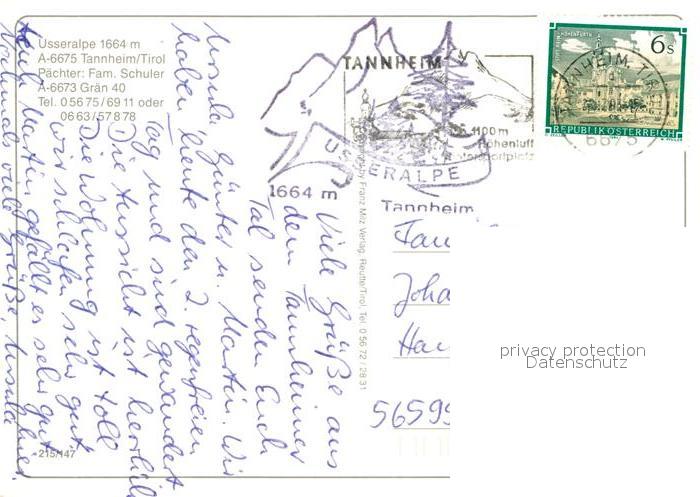 Usseralpe 1664 m
A-6675 Tannheim/Tirol
Pächter: Fam. Schuler
A-6673 Grän 40
Tel. 0 56 75 / 69 11 oder
06 63 / 5 78 78
TANNHEIM
1100 m
Höhenluft
Wintersportplatz
USSERALPE
1664 m
Tannheim
6 s
REPUBLIK ÖSTERREICH
TANNHEIM
6675
Franz Milz Verlag, Reutte/Tirol, Tel. 0 56 72 / 28 31
Viele Grüße aus
dem Tannheimer
Tal senden Euch
Ursula, Günter u. Martin. Wir
haben heute den 2. regenfreien
Tag und sind gewandert
Die Aussicht ist herrlich
Die Wohnung ist toll
wir schlafen sehr gut
Auch Martin gefällt es sehr gut.
Nochmals viele Grüße, Ursula
Fam
Joha
Hau
56599
215/147
privacy protection
Datenschutz